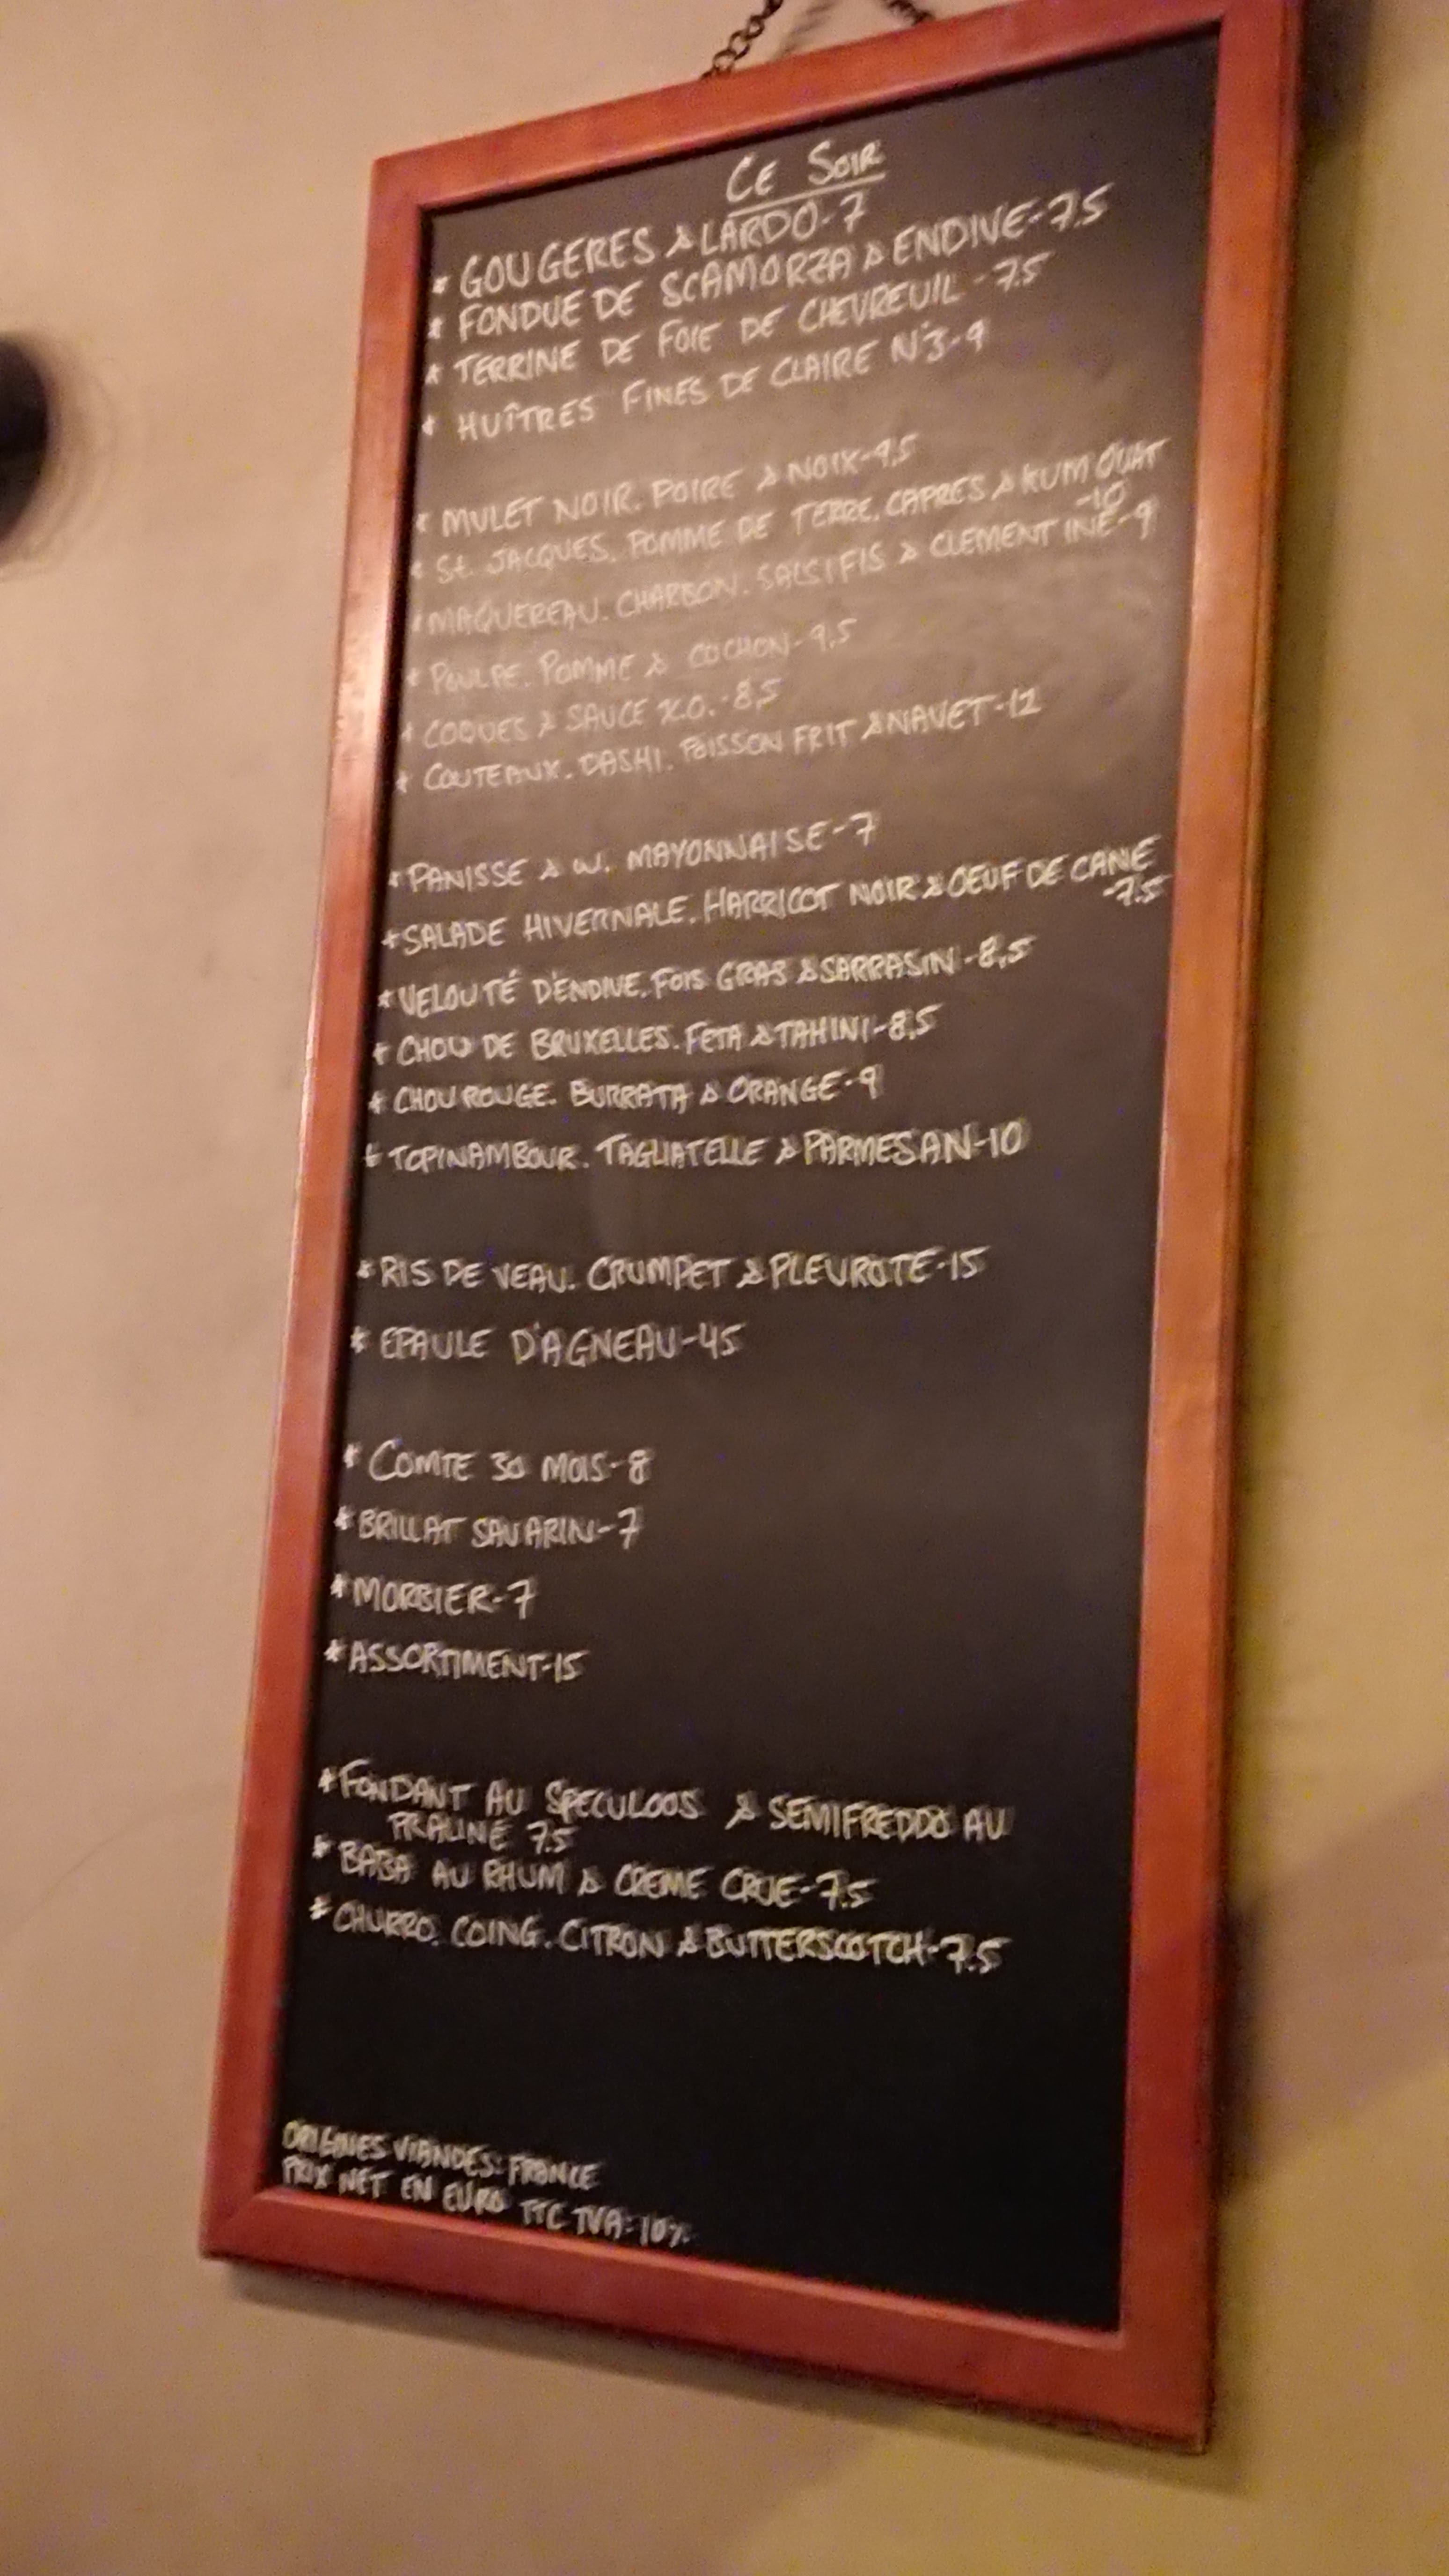 CE SOIR
* GOUGERES & LARDO-7
* FONDUE DE SCAMORZA & ENDIVE-7.5
* TERRINE DE FOIE DE CHEVREUIL-7.5
* HUÎTRES FINES DE CLAIRE N°3-9
* MULET NOIR. POIRE & NOIX-9.5
* St. JACQUES. POMME DE TERRE. CAPRES & KUMQUAT
-10
* MAQUEREAU. CHARBON. SALSIFIS & CLEMENTINE-9
* POULPE. POMME & COCHON-9.5
* COQUES & SAUCE X.O.-8,5
* COUTEAUX. DASHI. POISSON FRIT & NAVET-12
* PANISSE & W. MAYONNAISE-7
* SALADE HIVERNALE. HARRICOT NOIR & OEUF DE CANE
-7.5
* VELOUTÉ D'ENDIVE. FOIS GRAS & SARRASIN-8,5
* CHOU DE BRUXELLES. FETA & TAHINI-8,5
* CHOU ROUGE. BURRATA & ORANGE-9
* TOPINAMBOUR. TAGLIATELLE & PARMESAN-10
* RIS DE VEAU. CRUMPET & PLEUROTE-15
* EPAULE D'AGNEAU-45
* COMTE 30 MOIS-8
* BRILLAT SAVARIN-7
* MORBIER-7
* ASSORTIMENT-15
* FONDANT AU SPECULOOS & SEMIFREDDO AU
PRALINE 7.5
* BABA AU RHUM & CREME CRUE-7.5
* CHURRO. COING. CITRON & BUTTERSCOTCH-7.5
ORIGINES VIANDES: FRANCE
PRIX NET EN EURO TTC TVA: 10%